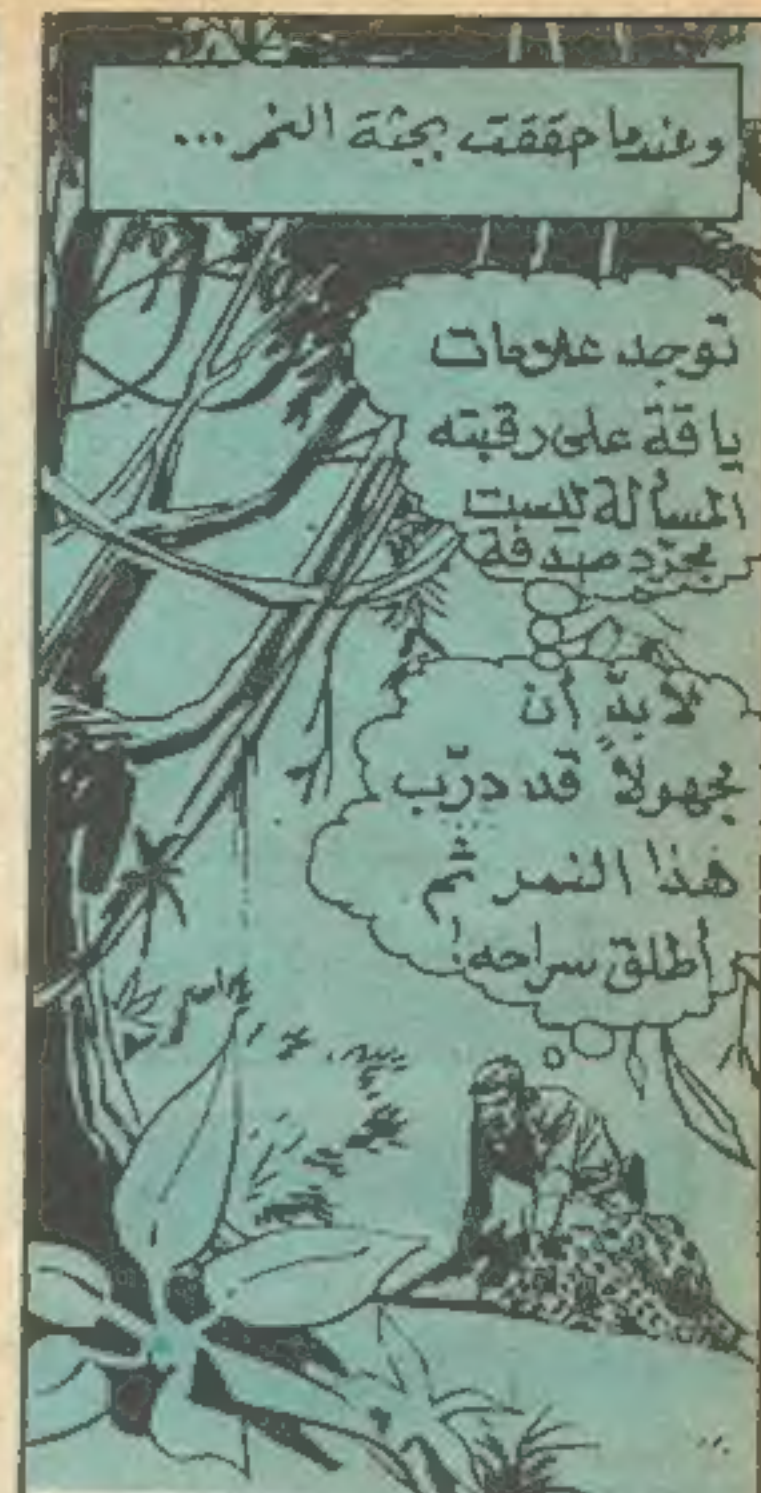 وعندما حققت بجثة النمر...
توجد علامات
ياقة على رقبته
المسألة ليست
مجرّد صدفة
لا بدّ أن
مجهولاً قد درّب
هذا النمر ثم
أطلق سراحه!